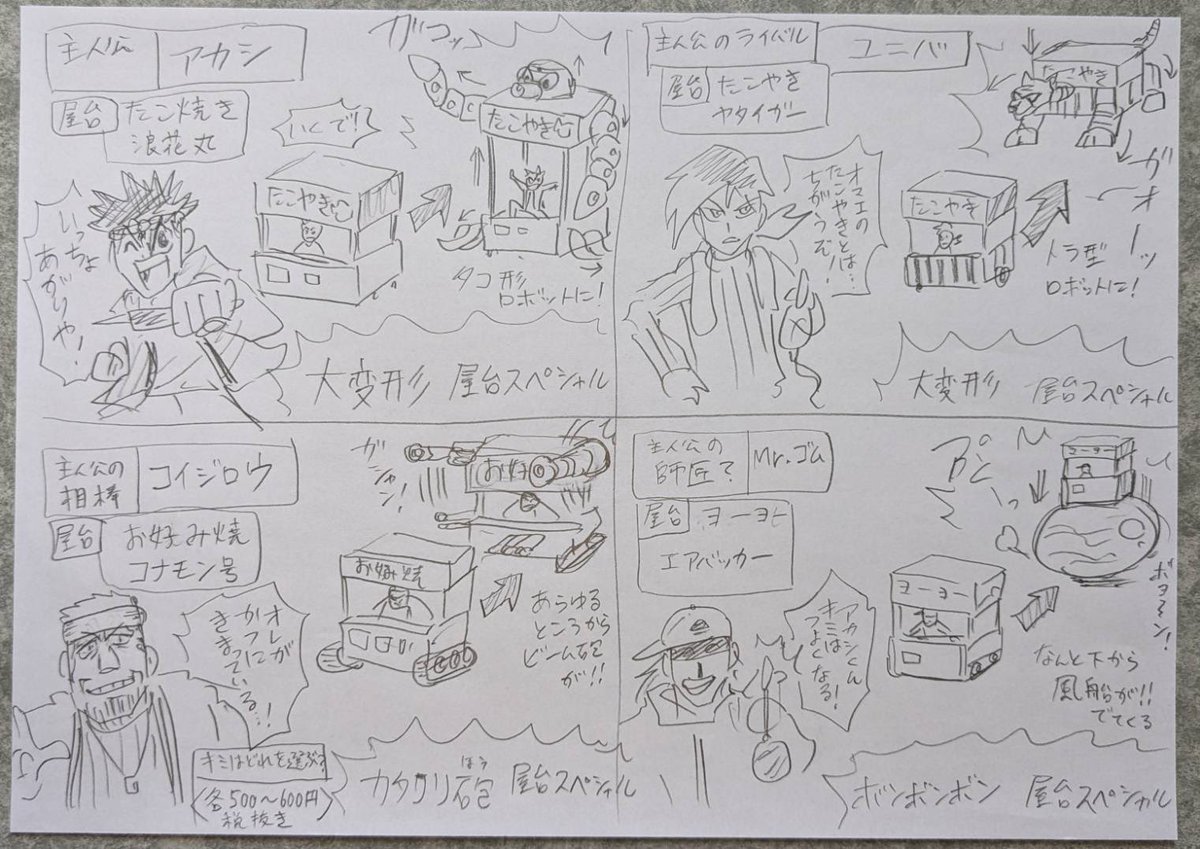 主人公
アカシ
屋台
たこ焼き
浪花丸
いくで!
ガコッ
たこやき
たこやき
いっちょ
あがりや!
タコ形
ロボットに!
大変形 屋台スペシャル
主人公のライバル
ユニバ
屋台
たこやき
ヤタイガー
オマエの
たこやきとは…
ちがうぞ!
たこやき
たこやき
ガオーッ
トラ型
ロボットに!
大変形 屋台スペシャル
主人公の
相棒
コイジロウ
屋台
お好み焼
コナモン号
ガシャン!
お好
お好み焼
オレが
かつに
きまっている…!
あらゆる
ところから
ビーム砲
が!!
キミはどれを選ぶ?
各500~600円
税抜き
カタクリ砲 屋台スペシャル
ほう
主人公の
師匠?
Mr.ゴム
屋台
ヨーヨー
エアバッカー
ヨーヨー
ヨーヨー
アカシくん
キミは
つよくなる!
ボヨ~ン!
なんと下から
風船が!!
でてくる
ボンボンボン 屋台スペシャル